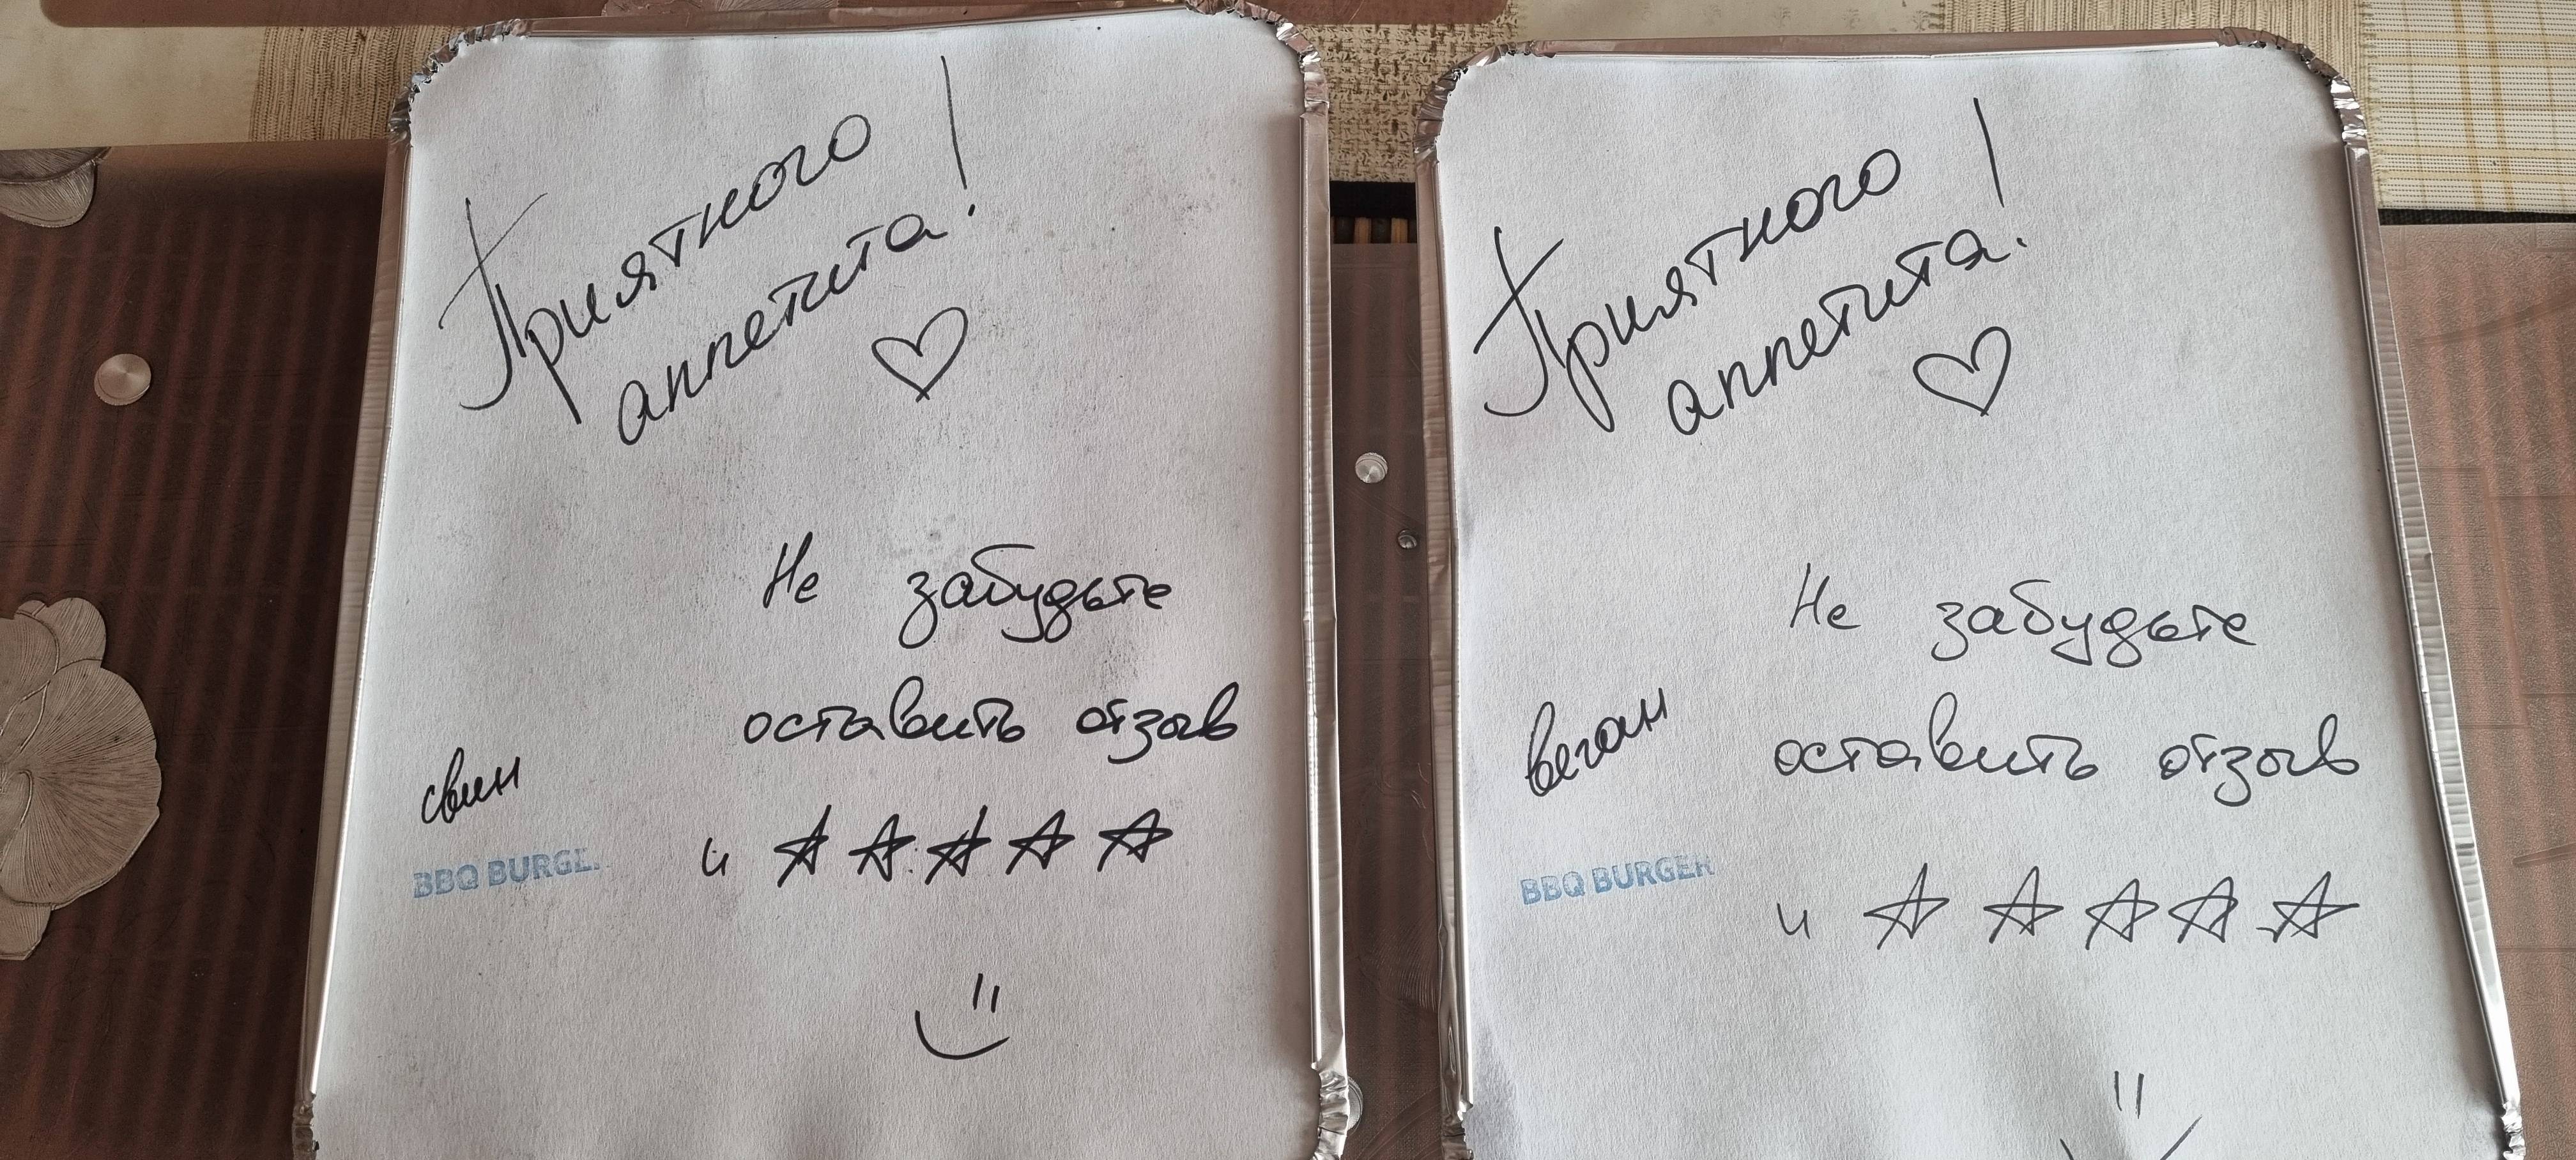 Приятного
аппетита!
Не забудьте
оставить отзыв
свин
и
BBQ BURGE
Приятного
аппетита!
Не забудьте
оставить отзыв
веган
и
BBQ BURGER